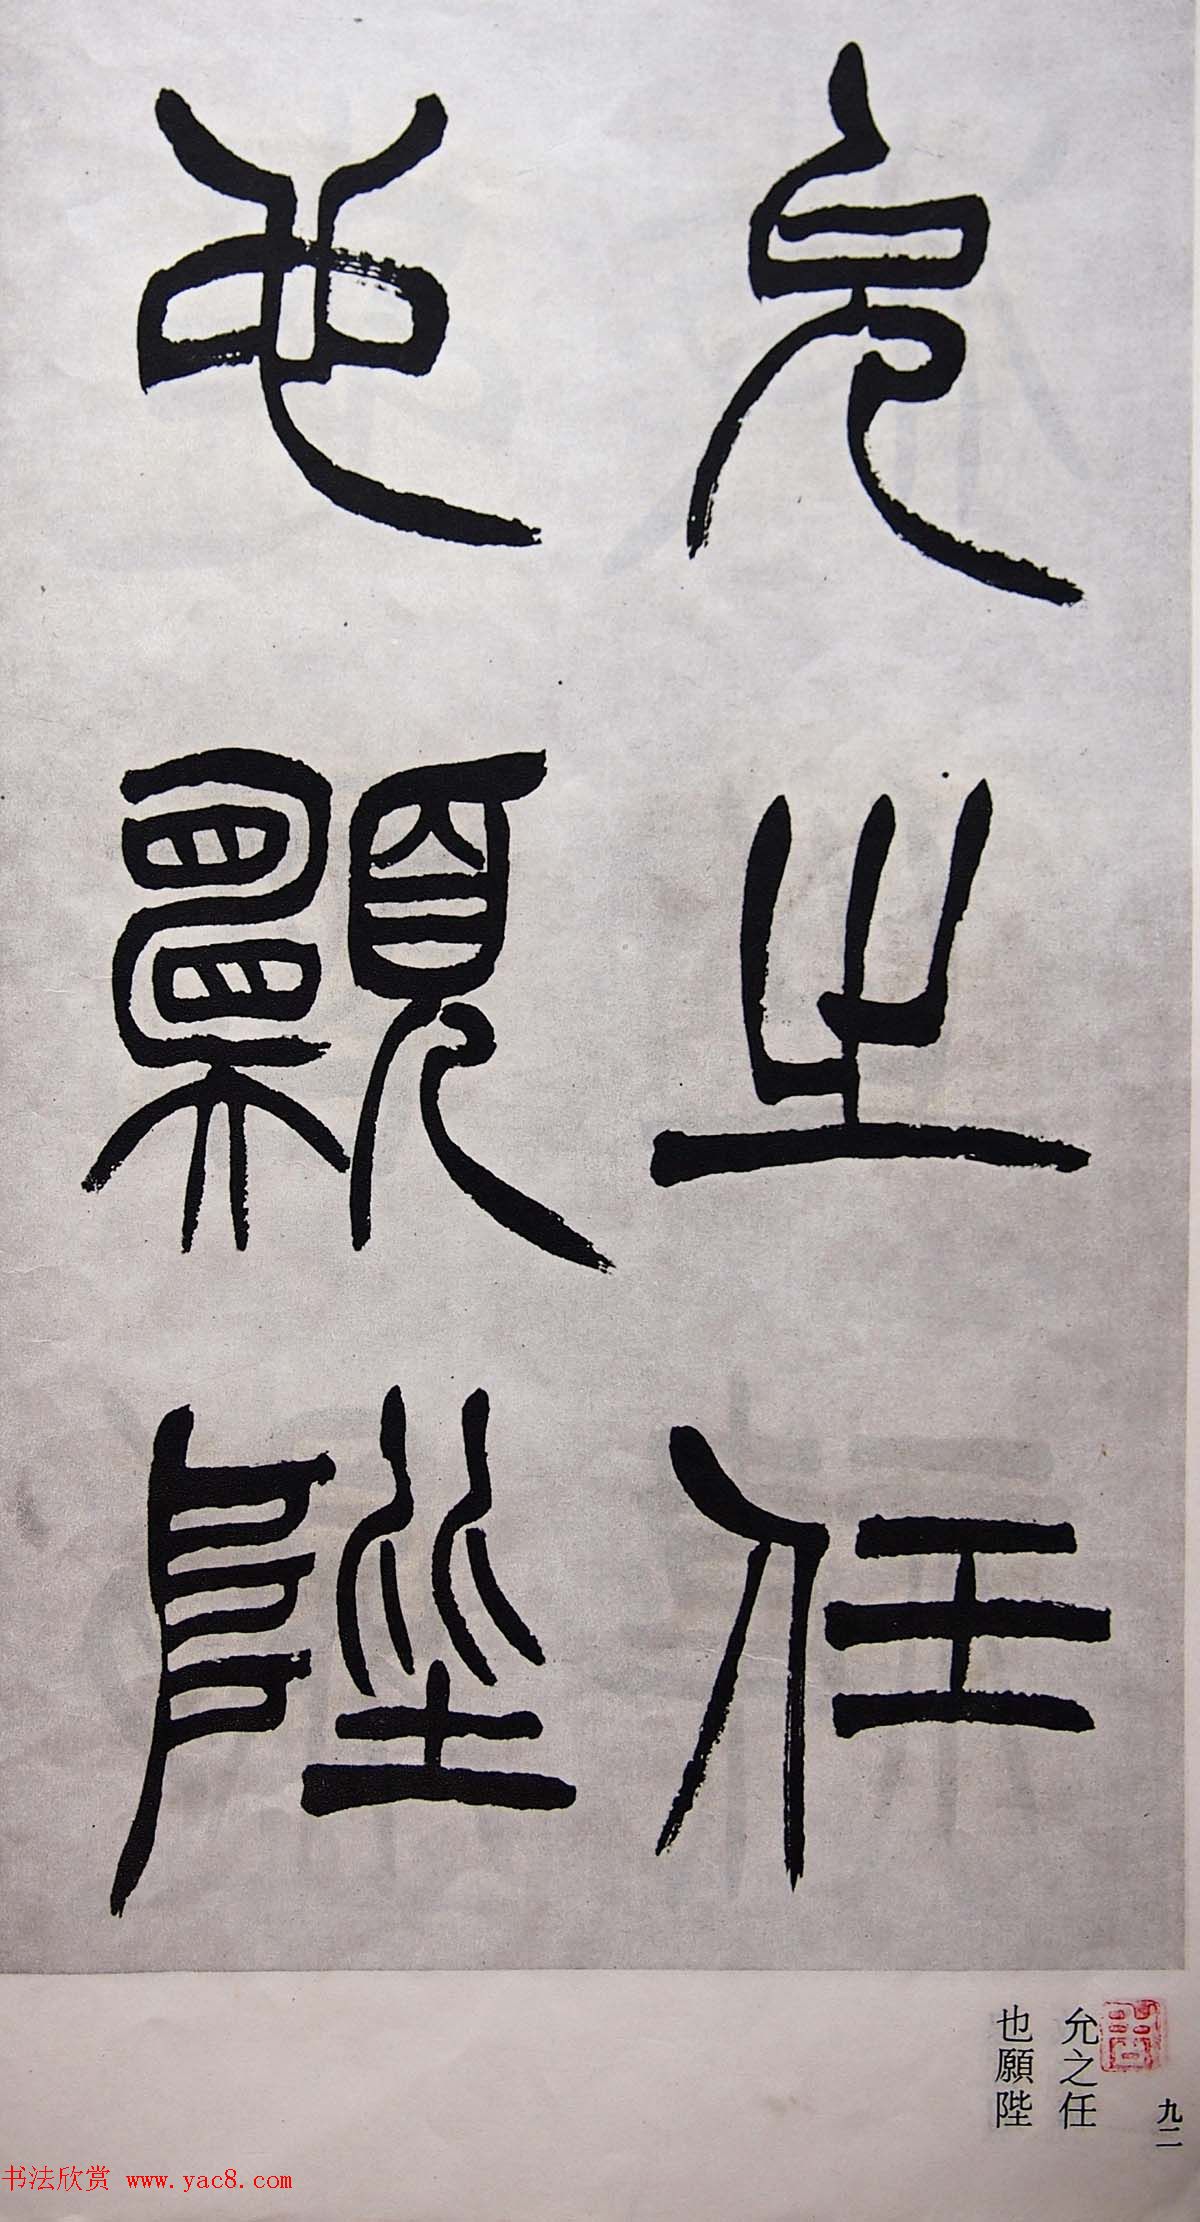 允之任
也願陛
允之任
也願陛
九二
书法欣赏 www.yac8.com